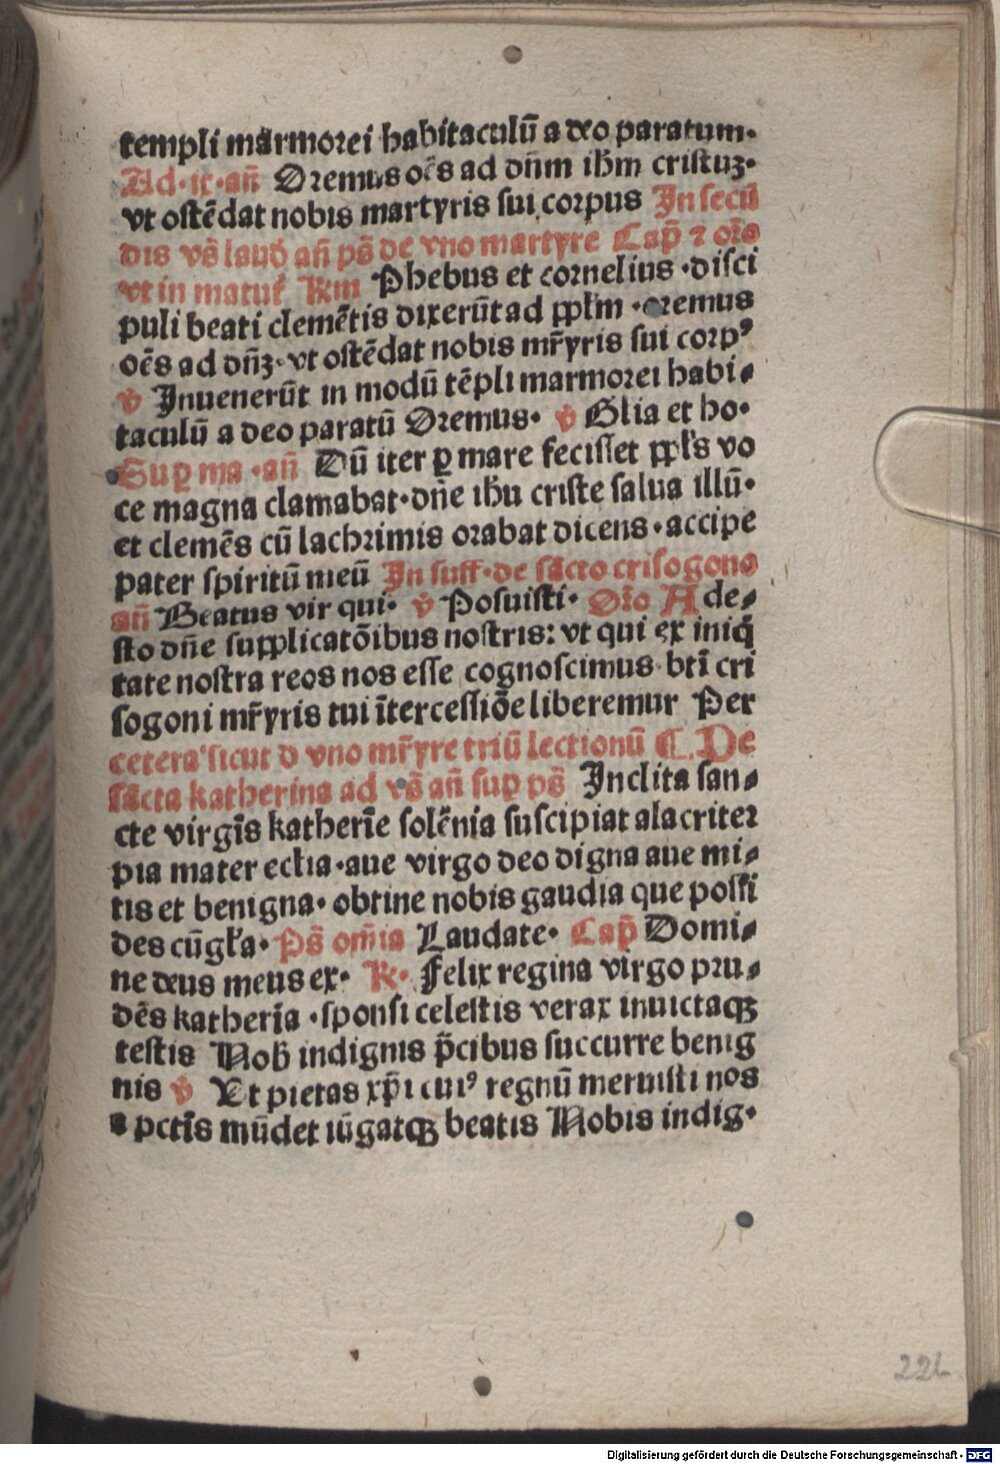 templi marmorei habitaculū a deo paratum.
Ad.ix.añ Oremus oēs ad dñm ihm cristuz.
vt ostēdat nobis martyris sui corpus In secū
dis vs̄ laud añ ps̄ de vno martyre Cap̄ ⁊ orō
vt in matut Rm Phebus et cornelius.disci
puli beati clemētis dixerūt ad pplm.oremus
oēs ad dñz.vt ostēdat nobis mr̄yris sui corpꝰ
℣ Inuenerūt in modū tēpli marmorei habi-
taculū a deo paratū Oremus. ℣ Glia et ho.
Suꝑ ma.añ Dū iter ꝑ mare fecisset ppls vo
ce magna clamabat.dñe ihu criste salua illū.
et clemēs cū lachrimis orabat dicens.accipe
pater spiritū meū In suff.de sācto crisogono
añ Beatus vir qui. ℣ Posuisti. Orō Ade-
sto dñe supplicatōibus nostris: vt qui ex iniq̄
tate nostra reos nos esse cognoscimus.btī cri
sogoni mr̄yris tui ītercessiōe liberemur Per
cetera sicut d vno mr̄yre triū lectionū ¶ De
sācta katherina ad vs̄ añ suꝑ ps̄ Inclita san-
cte virgīs katherīe solēnia suscipiat alacriter
pia mater ecclia.aue virgo deo digna aue mi-
tis et benigna.obtine nobis gaudia que possi
des cū gła. Ps̄ om̄ia Laudate. Cap̄ Domi-
ne deus meus ex. R. Felix regina virgo pru-
dēs katherīa.sponsi celestis verax inuictaqꝫ
testis Nob indignis p̄cibus succurre benig
nis ℣ Et pietas xp̄i cuiꝰ regnū meruisti nos
a pctīs mūdet iūgatqꝫ beatis Nobis indig.
221
Digitalisierung gefördert durch die Deutsche Forschungsgemeinschaft - DFG